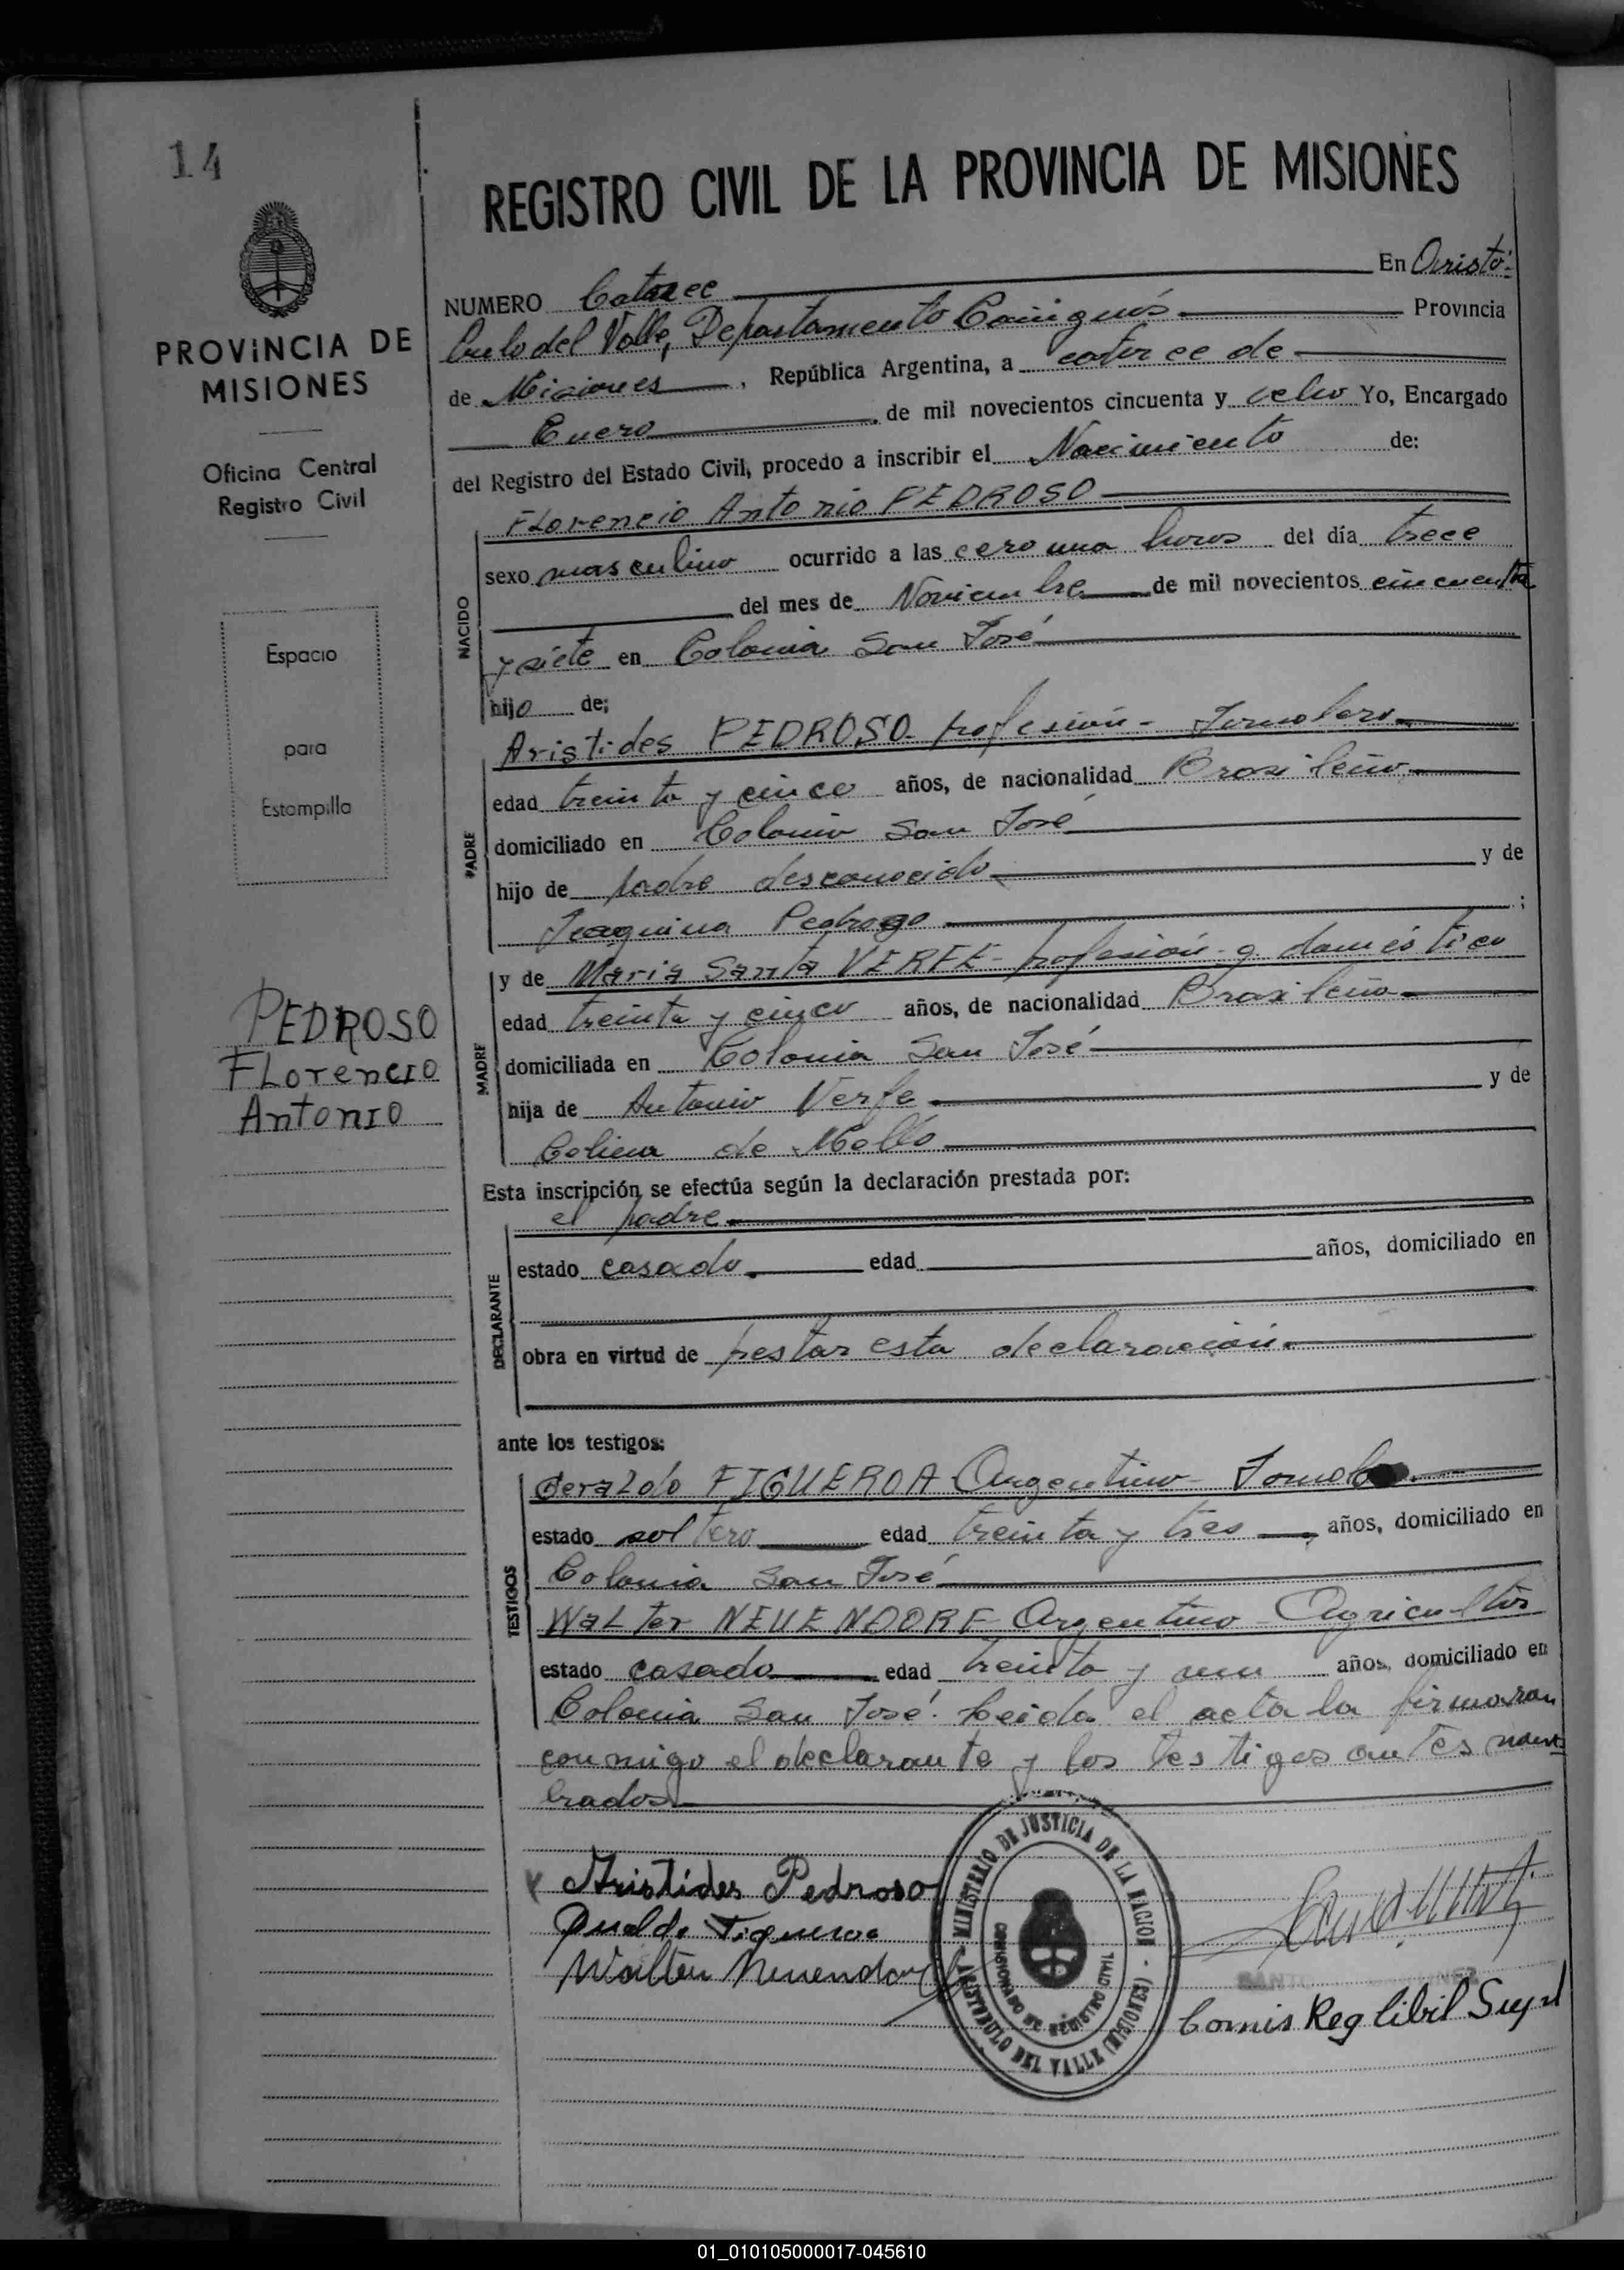 14
REGISTRO CIVIL DE LA PROVINCIA DE MISIONES
PROVINCIA DE
MISIONES
Oficina Central
Registro Civil
Espacio
para
Estampilla
PEDROSO
Florencio
Antonio
NUMERO Catorce En Aristó-
bulo del Valle, Departamento Cainguás Provincia
de Misiones, República Argentina, a catorce de
Enero de mil novecientos cincuenta y ocho Yo, Encargado
del Registro del Estado Civil, procedo a inscribir el Nacimiento de:
NACIDO
Florencio Antonio PEDROSO
sexo masculino ocurrido a las cero una horas del día trece
del mes de Noviembre de mil novecientos cincuenta
y siete en Colonia San José
hijo de;
PADRE
Aristides PEDROSO profesión - Jornalero
edad treinta y cinco años, de nacionalidad Brasileño
domiciliado en Colonia San José
hijo de padre desconocido y de
Joaquina Pedroso ;
MADRE
y de Maria Santa VERFE - profesión q. doméstico
edad treinta y cinco años, de nacionalidad Brasileña
domiciliada en Colonia San José
hija de Antonio Verfe y de
Celina de Mello
Esta inscripción se efectúa según la declaración prestada por:
DECLARANTE
el padre
estado casado edad años, domiciliado en
obra en virtud de prestar esta declaración.
ante los testigos:
TESTIGOS
Geraldo FIGUEROA Argentino - Jornalero
estado soltero edad treinta y tres años, domiciliado en
Colonia San José
Walter NEUENDORF Argentino - Agricultor
estado casado edad treinta y un años, domiciliado en
Colonia San José. Leida el acta la firmaron
conmigo el declarante y los testigos antes nom-
brados
x Aristides Pedroso
Figueroa
Walter Neuendorf
MINISTERIO DE JUSTICIA DE LA NACION - ARISTOBULO DEL VALLE (MISIONES)
COMISIONADO DE REGISTRO CIVIL
Comis Reg Cibil Supl
01_010105000017-045610